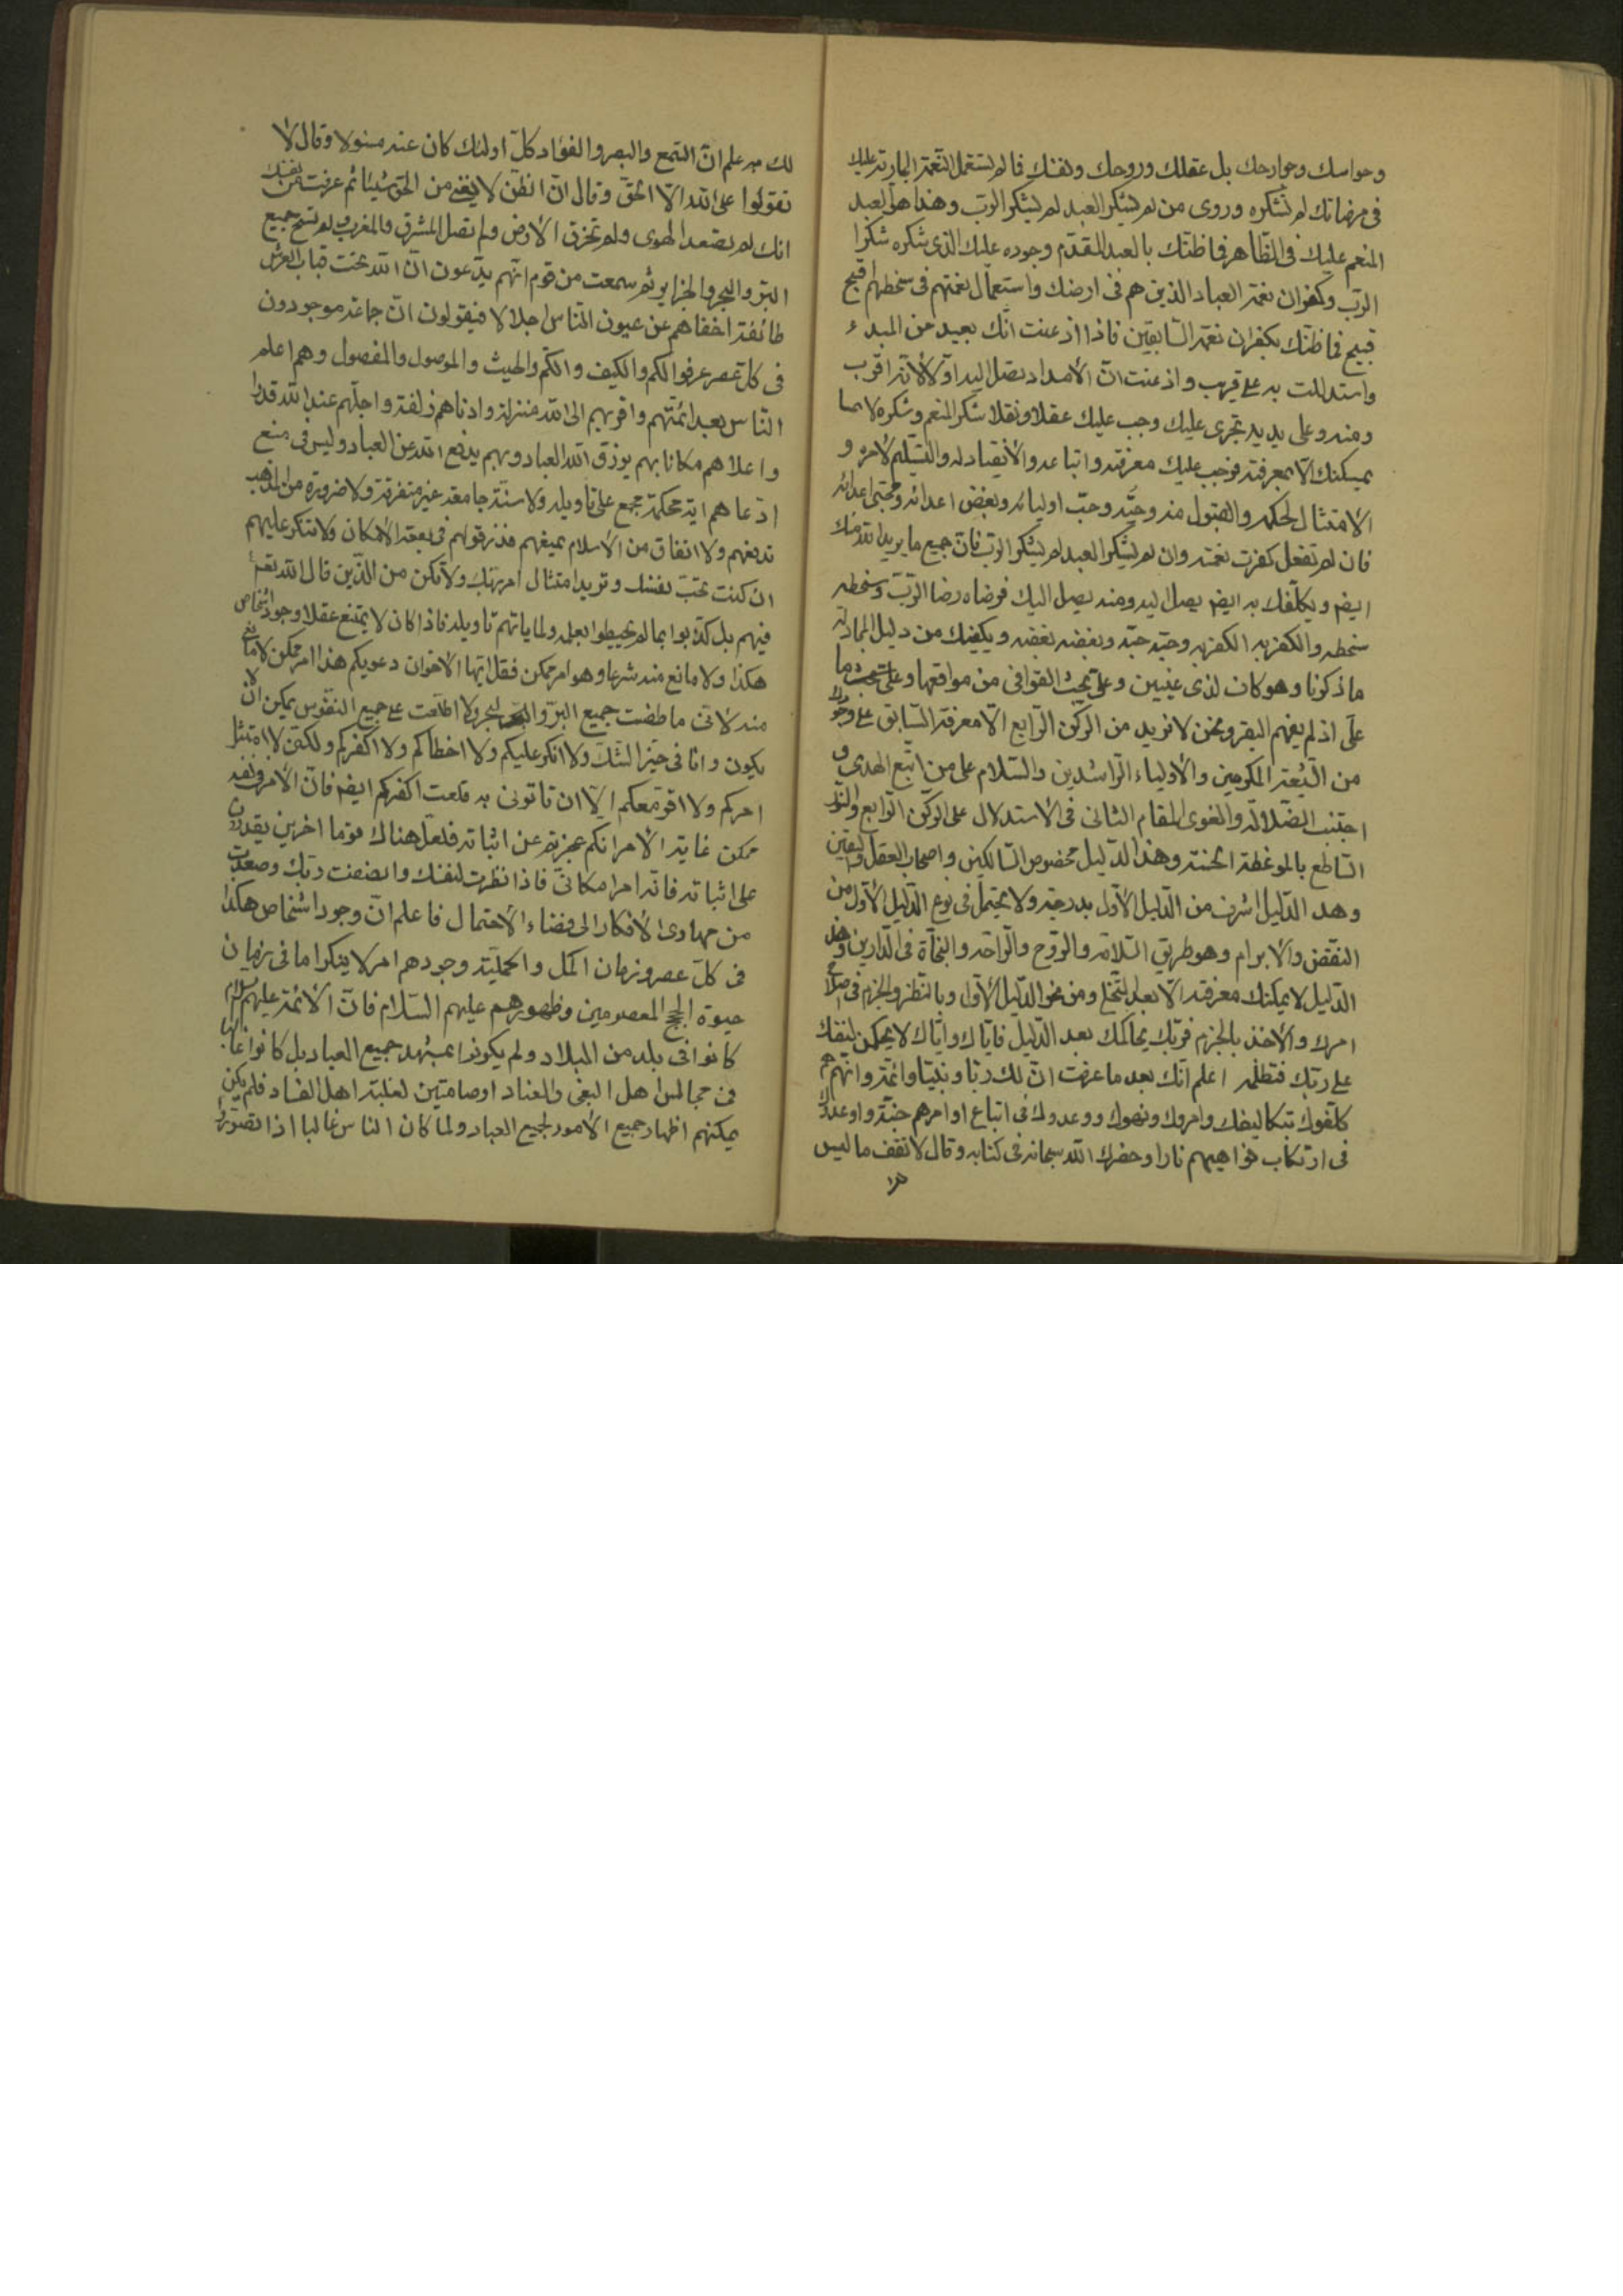 وحواسك وجوارحك بل عقلك وروحك ونفسك فالم تستعمل النعمة البارة عليك
فى مرضاتك لم تشكره وروى من لم يشكر العبد لم يشكر الرب وهذا هو العبد
المنعم عليك فى الظاهر فما ظنك بالعبد المقدم وجوده عليك الذى شكره شكر
الرب وكفران نعمة العباد الذين هم فى ارضك واستعمال نعمتهم فى سخطهم اقبح
قبيح فما ظنك بكفران نعمة السابقين فاذا اذعنت انك بعيد من المبدء
واستدللت به على قريب واذعنت ان الامداد يصل اليه اولا لانه اقرب
ومنه وعلى يديه تجرى عليك وجب عليك عقلا ونقلا شكر المنعم وشكره لا
يمكنك الا بمعرفته فوجب عليك معرفته واتباعه والانقياد له والتسليم لامره و
الامتثال لحكمه والقبول منه وحبه وحب اوليائه وبغض اعدائه ومحبى اعدائه
فان لم تفعل كفرت نعمته وان لم يشكر العبد لم يشكر الرب فان جميع ما يريد الله منك
ايضا ويكلفك به ايضا يصل اليه ومنه يصل اليك فرضاه رضا الرب وسخطه
سخطه والكفر به الكفر به وحبه حبه وبغضه بغضه ويكفيك من دليل المجادلة
ما ذكرنا وهو كاف لذى عينين وعلى نحت القوافى من مواقعها وعلى ما
على اذ لم يفهم البقر ونحن لا نريد من الركن الرابع الا معرفة السابق على وجوده
من الشيعة المكرمين والاولياء الراشدين والسلام على من اتبع الهدى و
اجتنب الضلالة والغوى المقام الثانى فى الاستدلال على الركن الرابع والنور
الساطع بالموعظة الحسنة وهذا الدليل مخصوص السالكين واصحاب العقل واليقين
وهذا الدليل اشرف من الدليل الاول بدرجة ولا يحتمل فى نوع الدليل الاول من
النقض والابرام وهو طريق السلامة والروح والراحة والنجاة فى الدارين وهذا
الدليل لا يمكنك معرفته الا بعد ومن نحو الدليل الاول وبالنظر والجزم فى اصلاح
امرك والاخذ بالجزم فربك يحاكمك بعد الدليل فاياك واياك لا يحكمن لنفسك
على ربك فتظلمه اعلم انك بعد ما عرفت ان لك ربا ونبيا وائمة وانهم
كلفوك بتكاليفك وامروك ونهوك ووعدوك فى اتباع اوامرهم جنة واوعدوك
فى ارتكاب نواهيهم نارا وحضرك الله سبحانه فى كتابه وقال لا تقف ما ليس
لك به علم ان السمع والبصر والفؤاد كل اولئك كان عنه مسئولا وقال لا
تقولوا على الله الا الحق وقال ان الظن لا يغنى من الحق شيئا ثم عرفت من نفسك
انك لم تصعد الهوى ولم تخرق الارض ولم تصل المشرق والمغرب ولم تسح جميع
البر والبحر والجزاير ثم سمعت من قوم انهم يدعون ان الله تحت قباب العرش
طائفة اخفاهم عن عيون الناس اجلالا فيقولون ان جماعة موجودون
فى كل عصر عرفوا الكم والكيف والكم والحيث والموصول والمفصول وهم اعلم
الناس بعد ائمتهم واقربهم الى الله منزلة وادناهم زلفة واجلهم عند الله قدرا
واعلاهم مكانا بهم يرزق الله العباد وبهم يدفع الله عن العباد وليس فى منع
ادعاهم اية محكمة مجمع على تاويله ولا سنة جامعة غير متفرقة ولا ضرورة من المذهب
تدفعهم ولا اتفاق من الاسلام يميعهم فذر قولهم فى بقعة الامكان ولا تنكر عليهم
ان كنت تحب نفسك وتريد امتثال امر ربك ولا تكن من الذين قال الله تعالى
فيهم بل كذبوا بما لم يحيطوا بعلمه ولما ياتهم تاويله فاذا كان لا يمتنع عقلا وجود اشخاص
هكذا ولا مانع منه شرعا وهو امر ممكن فقل ايها الاخوان دعويكم هذا امر ممكن لا مانع
منه لانى ما طفت جميع البر والبحر ولا اطلعت على جميع النفوس يمكن ان لا
يكون وانا فى حيز الشك ولا انكر عليكم ولا اخطأكم ولا اكفركم ولكنى لا امتثل
امركم ولا اقوم معكم الا ان تاتونى به قلعت اكفركم ايضا فان الامر فى نفسه
ممكن غاية الامر انكم عجزتم عن اثباته فلعل هناك قوما اخرين يقدرون
على اثباته فانه امر امكانى فاذا نظرت لنفسك وانصفت ربك وصعدت
من مهاوى الافكار الى فضاء الاحتمال فاعلم ان وجود اشخاص هكذا
فى كل عصر وزمان الكل والجملية وجودهم امر لا ينكر اما فى زمان
حيوة الحجج المعصومين وظهورهم عليهم السلام فان الائمة عليهم السلام
كانوا فى بلد من البلاد ولم يكونوا بمشهد جميع العباد بل كانوا غالبا
فى مجالس اهل البغى والعناد او صامتين لغلبة اهل الفساد فلم يكن
يمكنهم اظهار جميع الامور لجميع العباد ولما كان الناس غالبا اذا تصوروا